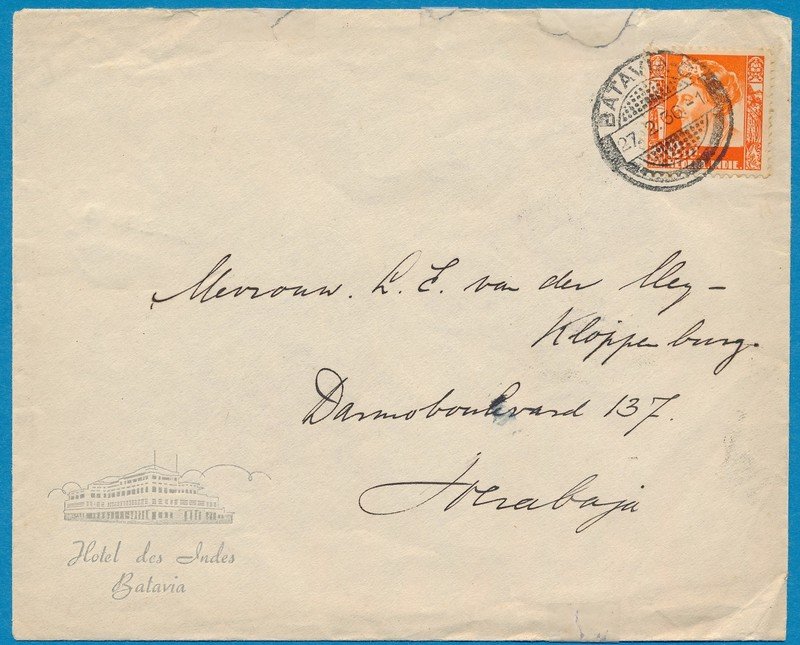 BATAVIA
27.12.36.21
NED. INDIE.
Mevrouw. L. E. van der Mey -
Kloppenburg.
Darmoboulevard 137.
Soerabaja
Hotel des Indes
Batavia